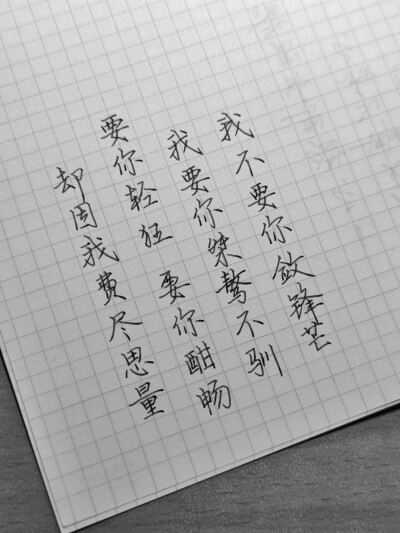 我不要你敛锋芒
我要你桀骜不驯
要你轻狂 要你酣畅
却因我费尽思量